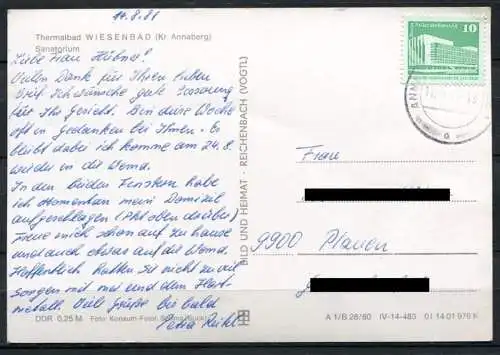 14.8.81
Thermalbad WIESENBAD (Kr. Annaberg)
Sanatorium
Liebe Frau Hübner!
Vielen Dank für Ihren lieben
Brief. Ich wünsche gute Besserung
für Ihr Gesicht. Bin diese Woche
oft in Gedanken bei Ihnen. Es
bleibt dabei ich komme am 24.8.
wieder in die
In den beiden Fenstern habe
ich momentan mein Domizil
aufgeschlagen (Pkt oben darüber)
Freue mich schon auf zu hause
und auch etwas auf die
Hoffentlich hatten Sie nicht zu viel
Sorgen mit mir und dem
Viele Grüße bis bald
Petra
DDR 0,25 M Foto: Konsum-Foto,
BILD UND HEIMAT · REICHENBACH (VOGTL)
10
Frau
9900 Plauen
A 1/B 28/80 IV-14-483 01 14 01 976 K